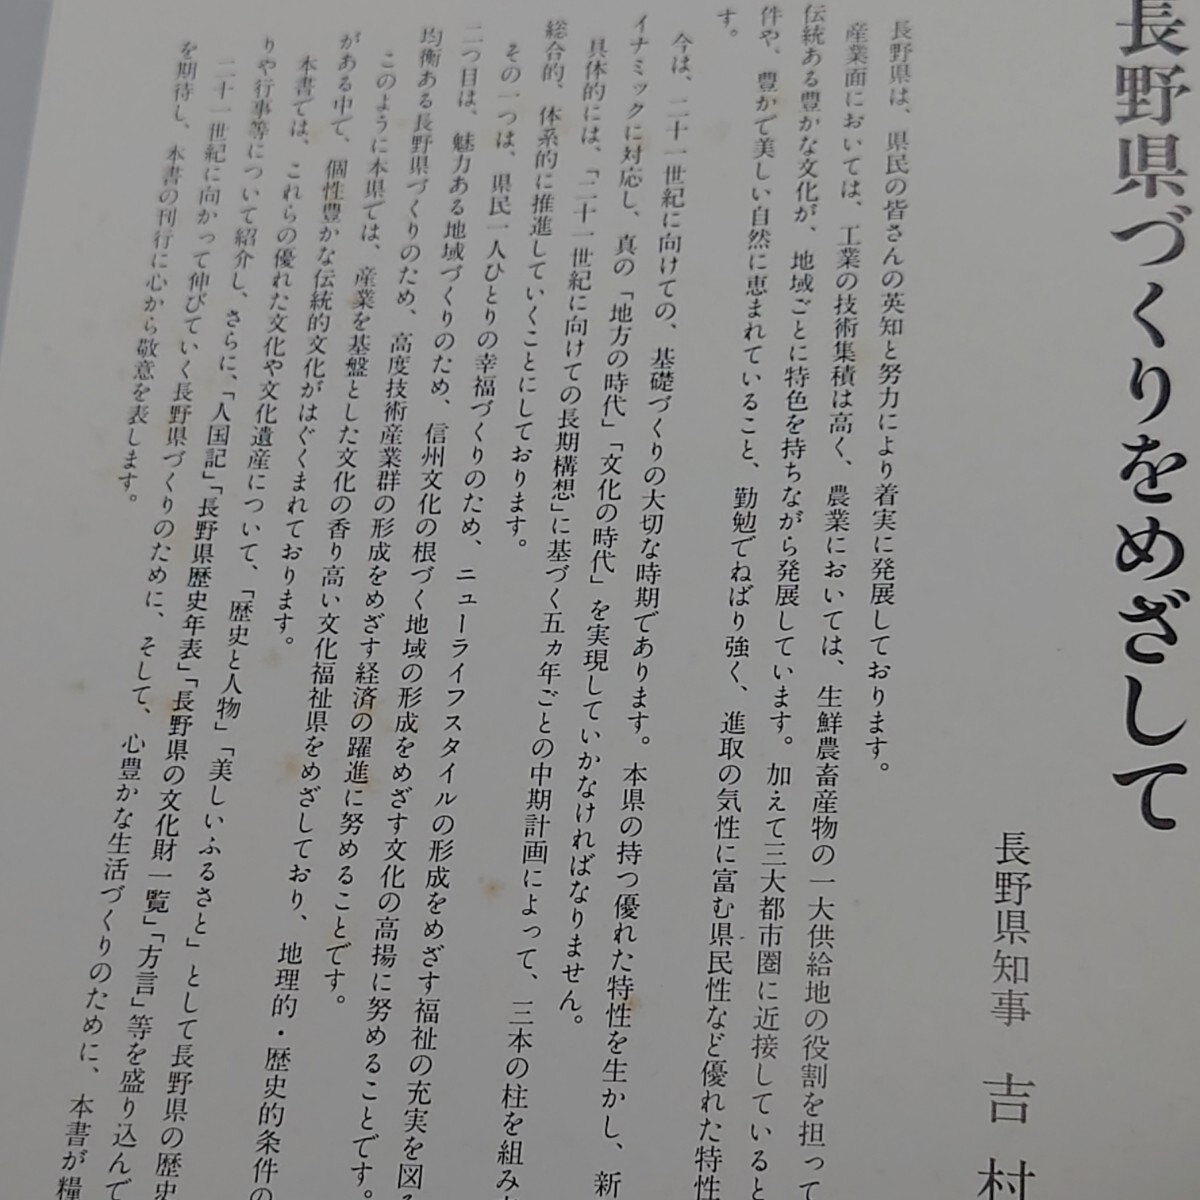 長野県づくりをめざして
長野県知事　吉村
長野県は、県民の皆さんの英知と努力により着実に発展しております。
産業面においては、工業の技術集積は高く、農業においては、生鮮農畜産物の一大供給地の役割を担って
伝統ある豊かな文化が、地域ごとに特色を持ちながら発展しています。加えて三大都市圏に近接していると
件や、豊かで美しい自然に恵まれていること、勤勉でねばり強く、進取の気性に富む県民性など優れた特性
す。
今は、二十一世紀に向けての、基礎づくりの大切な時期であります。本県の持つ優れた特性を生かし、新
イナミックに対応し、真の「地方の時代」「文化の時代」を実現していかなければなりません。
具体的には、「二十一世紀に向けての長期構想」に基づく五ヵ年ごとの中期計画によって、三本の柱を組み
総合的、体系的に推進していくことにしております。
その一つは、県民一人ひとりの幸福づくりのため、ニューライフスタイルの形成をめざす福祉の充実を図る
二つ目は、魅力ある地域づくりのため、信州文化の根づく地域の形成をめざす文化の高揚に努めることです。
均衡ある長野県づくりのため、高度技術産業群の形成をめざす経済の躍進に努めることです。
このように本県では、産業を基盤とした文化の香り高い文化福祉県をめざしており、地理的・歴史的条件の
がある中で、個性豊かな伝統的文化がはぐくまれております。
本書では、これらの優れた文化や文化遺産について、「歴史と人物」「美しいふるさと」として長野県の歴史
りや行事等について紹介し、さらに、「人国記」「長野県歴史年表」「長野県の文化財一覧」「方言」等を盛り込んで
二十一世紀に向かって伸びていく長野県づくりのために、そして、心豊かな生活づくりのために、本書が糧
を期待し、本書の刊行に心から敬意を表します。